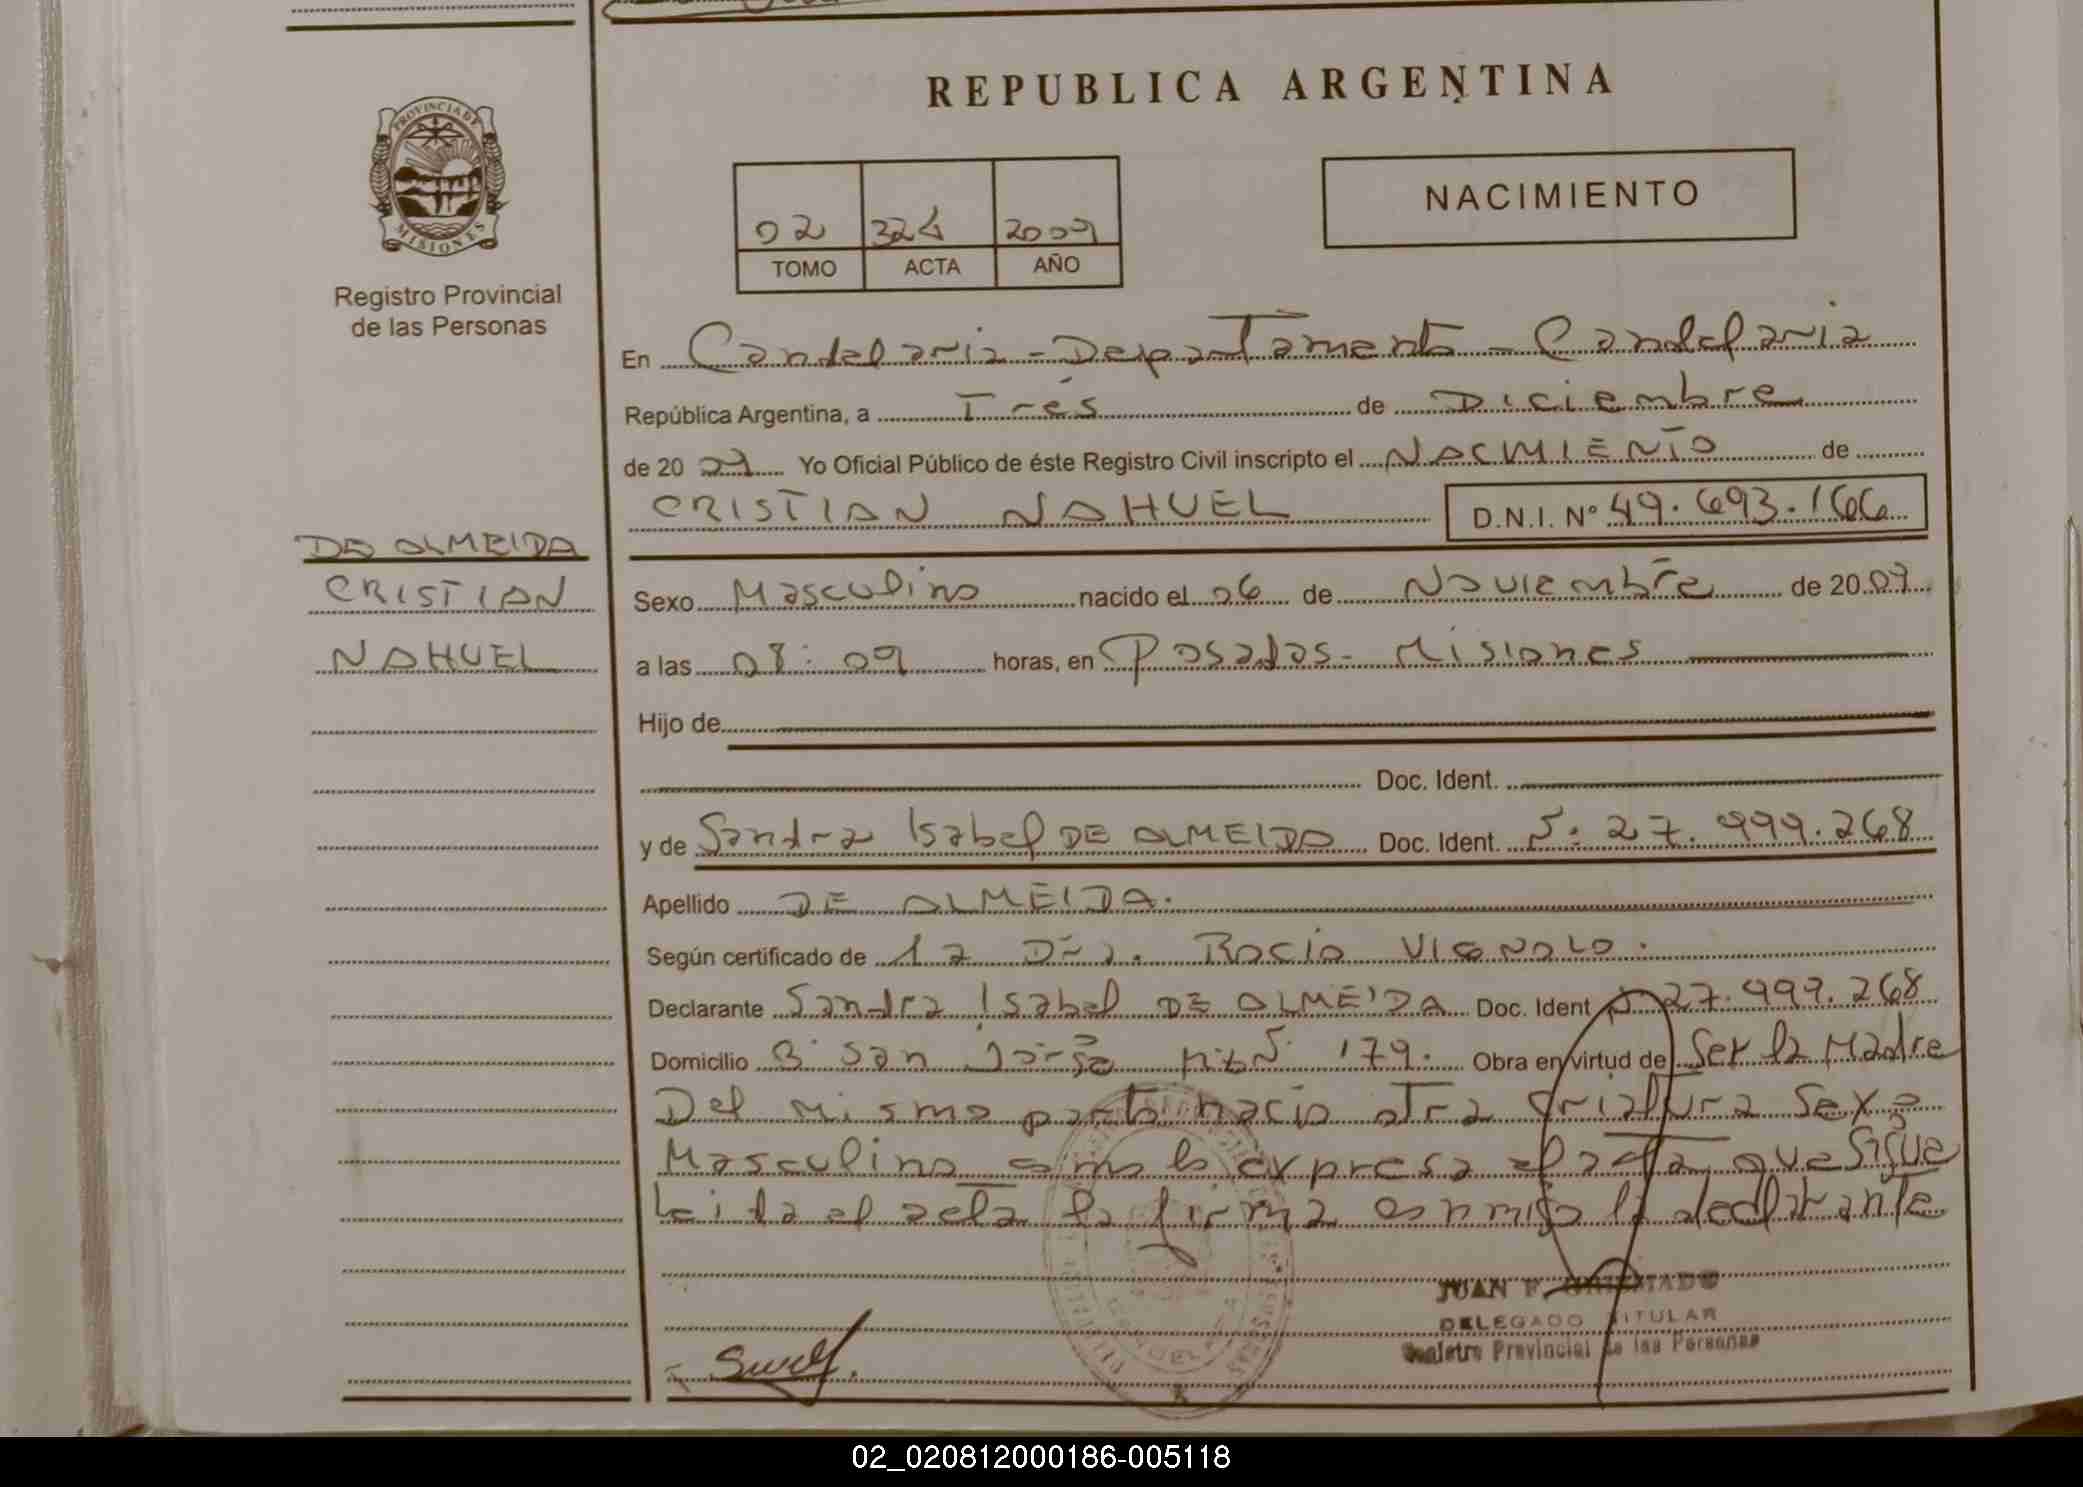 REPUBLICA ARGENTINA
PROVINCIA DE
MISIONES
Registro Provincial
de las Personas
NACIMIENTO
02 324 2009
TOMO ACTA AÑO
En Candelaria - Departamento - Candelaria
República Argentina, a Tres de Diciembre
de 20 09 Yo Oficial Público de éste Registro Civil inscripto el NACMIENTO de
CRISTIAN NAHUEL D.N.I. Nº 49.693.166
DE ALMEIDA
CRISTIAN
NAHUEL
Sexo Masculino nacido el 06 de Noviembre de 20 09
a las 08:09 horas, en Posadas - Misiones
Hijo de
Doc. Ident.
y de Sandra Isabel DE ALMEIDA Doc. Ident. 27.999.268
Apellido DE ALMEIDA.
Según certificado de la Dra. Rocio VIGNOLO.
Declarante Sandra Isabel DE ALMEIDA Doc. Ident 27.999.268
Domicilio Bº San Jorge 179. Obra en virtud de Ser la Madre
Del mismo parto nacio otra criatura Sexo
Masculino como lo expresa el acta que Sigue
Leida el acta la firma conmigo la declarante
JUAN F.
DELEGADO TITULAR
Registro Provincial de las Personas
02_020812000186-005118